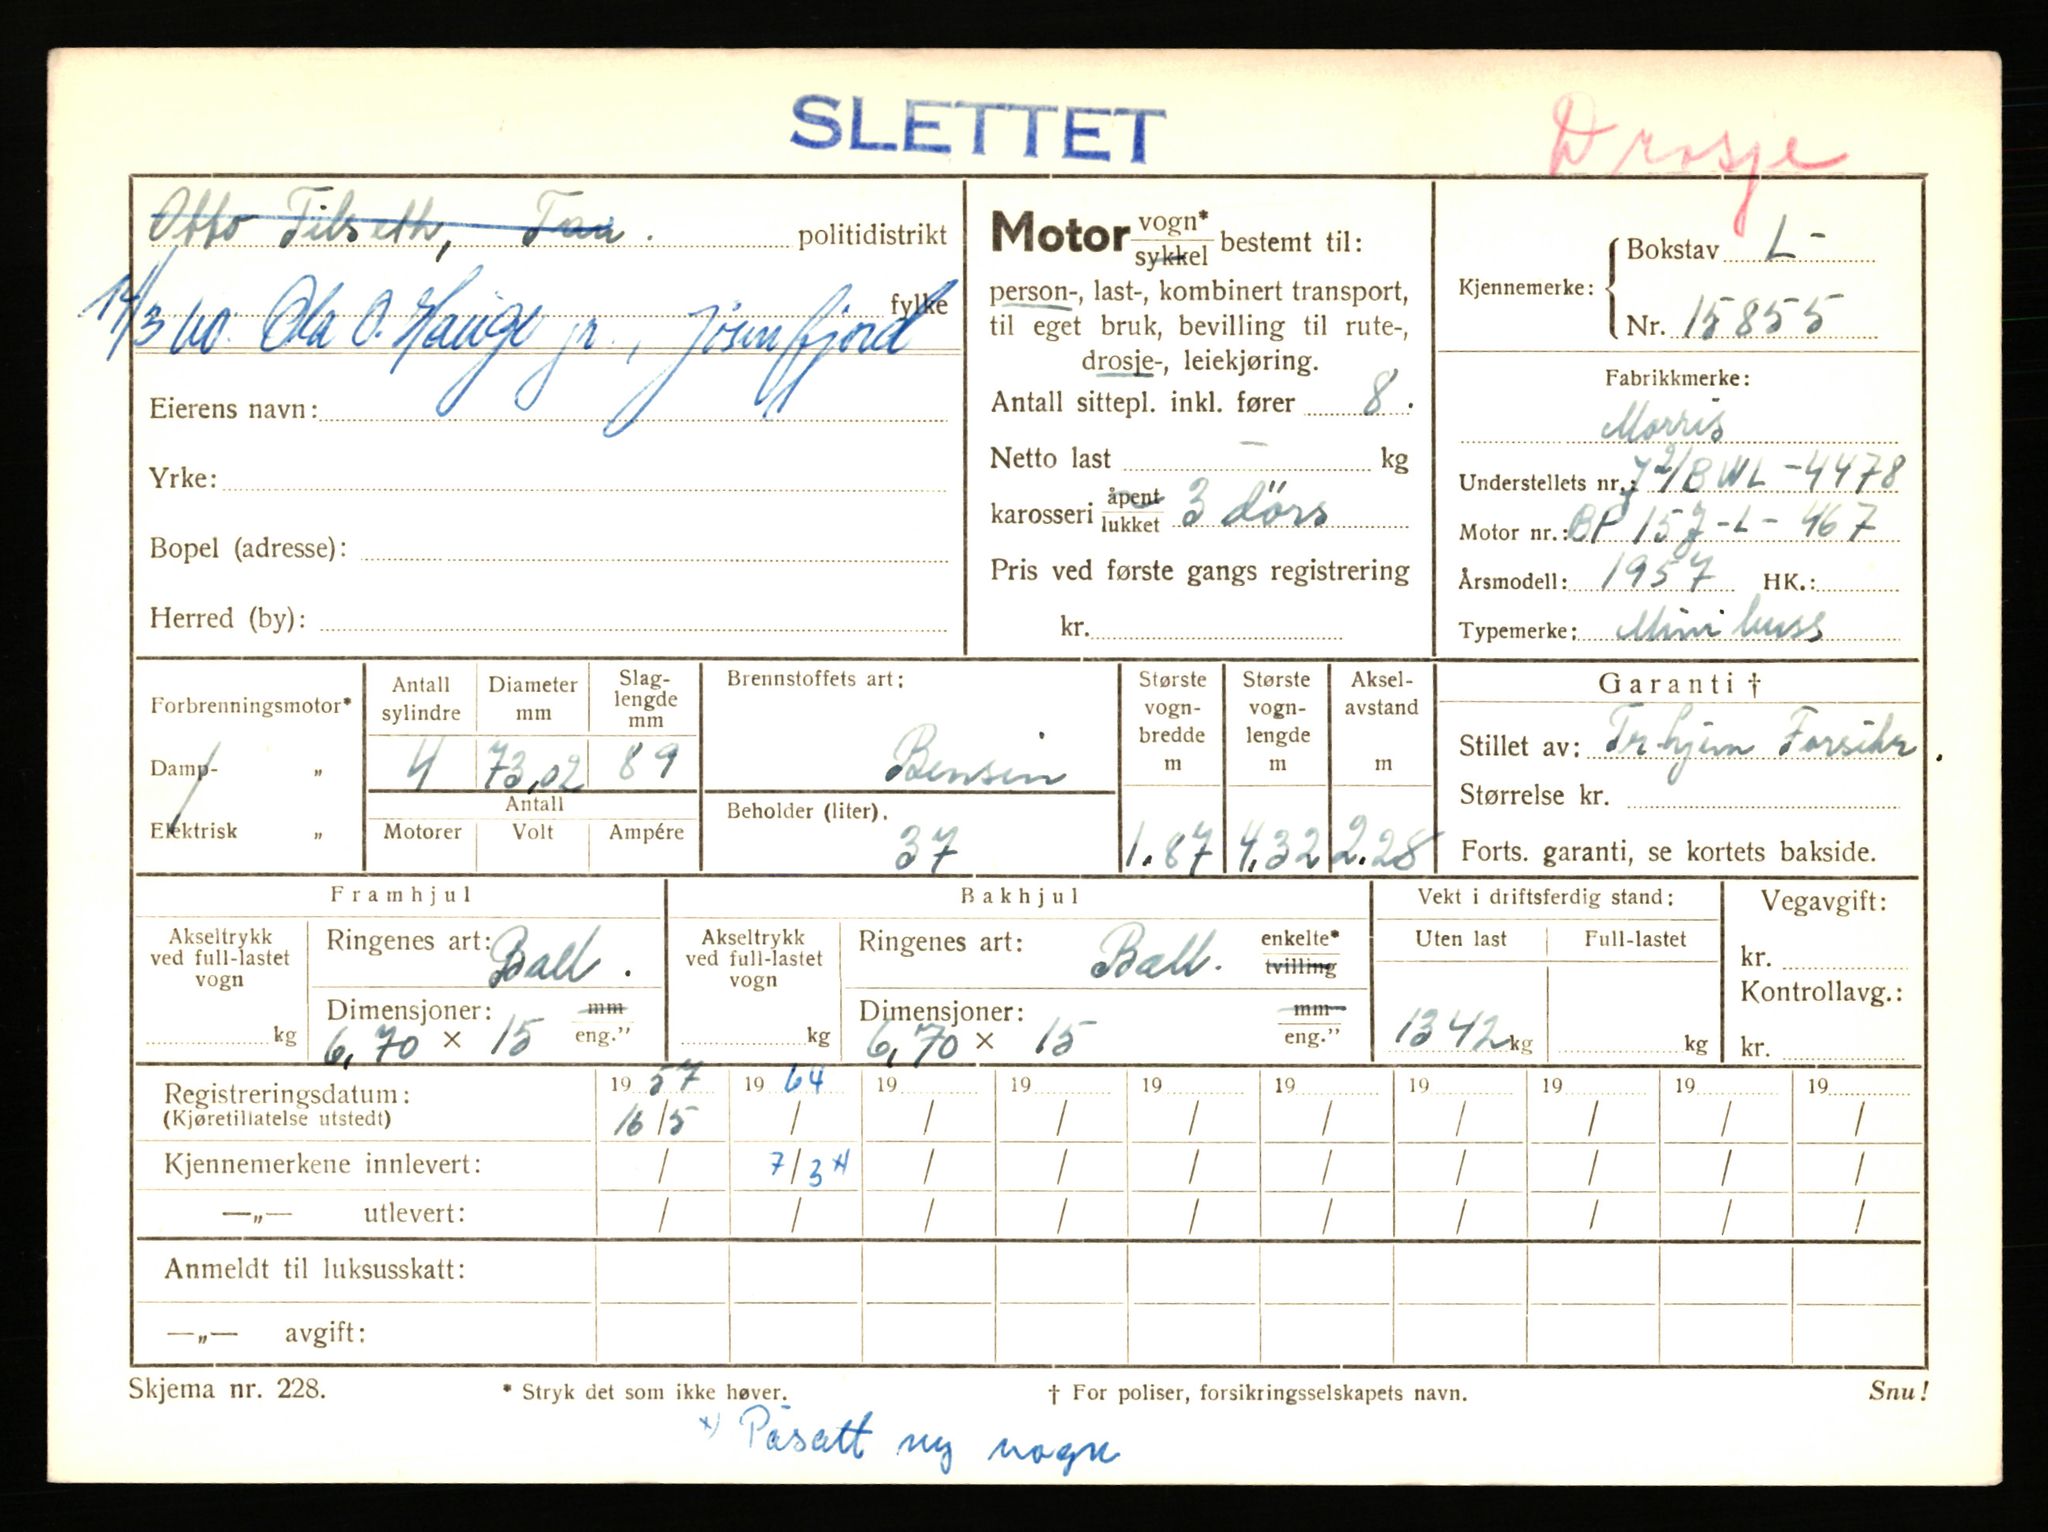 SLETTET
Drosje
Otto Tilseth, Tau. politidistrikt
14/3 60. Ola O. Hauge jr., Jøsenfjord fylke
Eierens navn:
Yrke:
Bopel (adresse):
Herred (by):
Motor vogn* / sykkel bestemt til:
person-, last-, kombinert transport,
til eget bruk, bevilling til rute-,
drosje-, leiekjøring.
Antall sittepl. inkl. fører 8.
Netto last — kg
karosseri åpent / lukket 3 dörs
Pris ved første gangs registrering
kr.
Kjennemerke: Bokstav L-
Nr. 15855
Fabrikkmerke:
Morris
Understellets nr.: J2/BWL-4478
Motor nr.: BP 15J-L-467
Årsmodell: 1957 HK.:
Typemerke: Mini buss
Forbrenningsmotor*
Damp- „
Elektrisk „
Antall sylindre
Diameter mm
Slaglengde mm
4 73,02 89
Antall
Motorer Volt Ampére
Brennstoffets art:
Bensin
Beholder (liter).
37
Største vognbredde m
1.87
Største vognlengde m
4,32
Akselavstand m
2.28
Garanti †
Stillet av: Tr.hjem Forsikr.
Størrelse kr.
Forts. garanti, se kortets bakside.
Framhjul
Akseltrykk ved full-lastet vogn
kg
Ringenes art: Ball.
Dimensjoner: mm / eng."
6,70 × 15
Bakhjul
Akseltrykk ved full-lastet vogn
kg
Ringenes art: Ball. enkelte* / tvilling
Dimensjoner: mm / eng."
6,70 × 15
Vekt i driftsferdig stand:
Uten last Full-lastet
1342 kg kg
Vegavgift:
kr.
Kontrollavg.:
kr.
Registreringsdatum: 19 57 19 64 19 19 19 19 19 19 19 19
(Kjøretillatelse utstedt) 16/5 / / / / / / / / /
Kjennemerkene innlevert: / 7/3 x) / / / / / / / /
—„— utlevert: / / / / / / / / / /
Anmeldt til luksusskatt:
—„— avgift:
Skjema nr. 228. * Stryk det som ikke høver. † For poliser, forsikringsselskapets navn. Snu!
x) Påsatt ny vogn